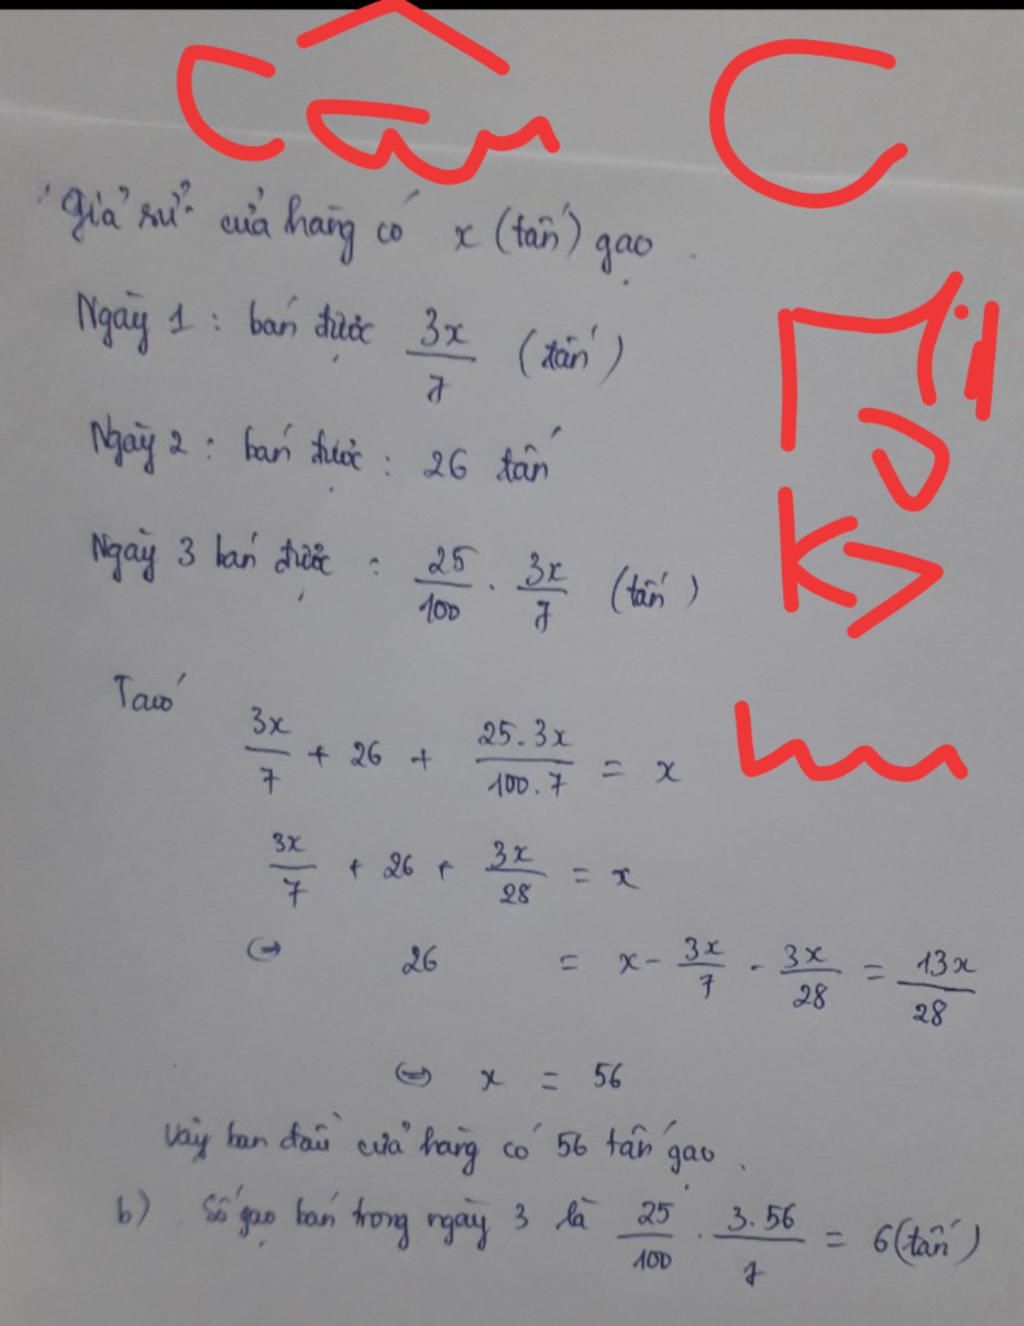 Câu C
Giả sử cửa hàng có x (tấn) gạo.
Ngày 1 : bán được 3x/7 (tấn)
Ngày 2 : bán được : 26 tấn
Ngày 3 bán được : 25/100 . 3x/7 (tấn)
Ta có
3x/7 + 26 + 25.3x/100.7 = x
3x/7 + 26 + 3x/28 = x
⇔ 26 = x - 3x/7 - 3x/28 = 13x/28
⇔ x = 56
Vậy ban đầu cửa hàng có 56 tấn gạo.
b) Số gạo bán trong ngày 3 là 25/100 . 3.56/7 = 6 (tấn)